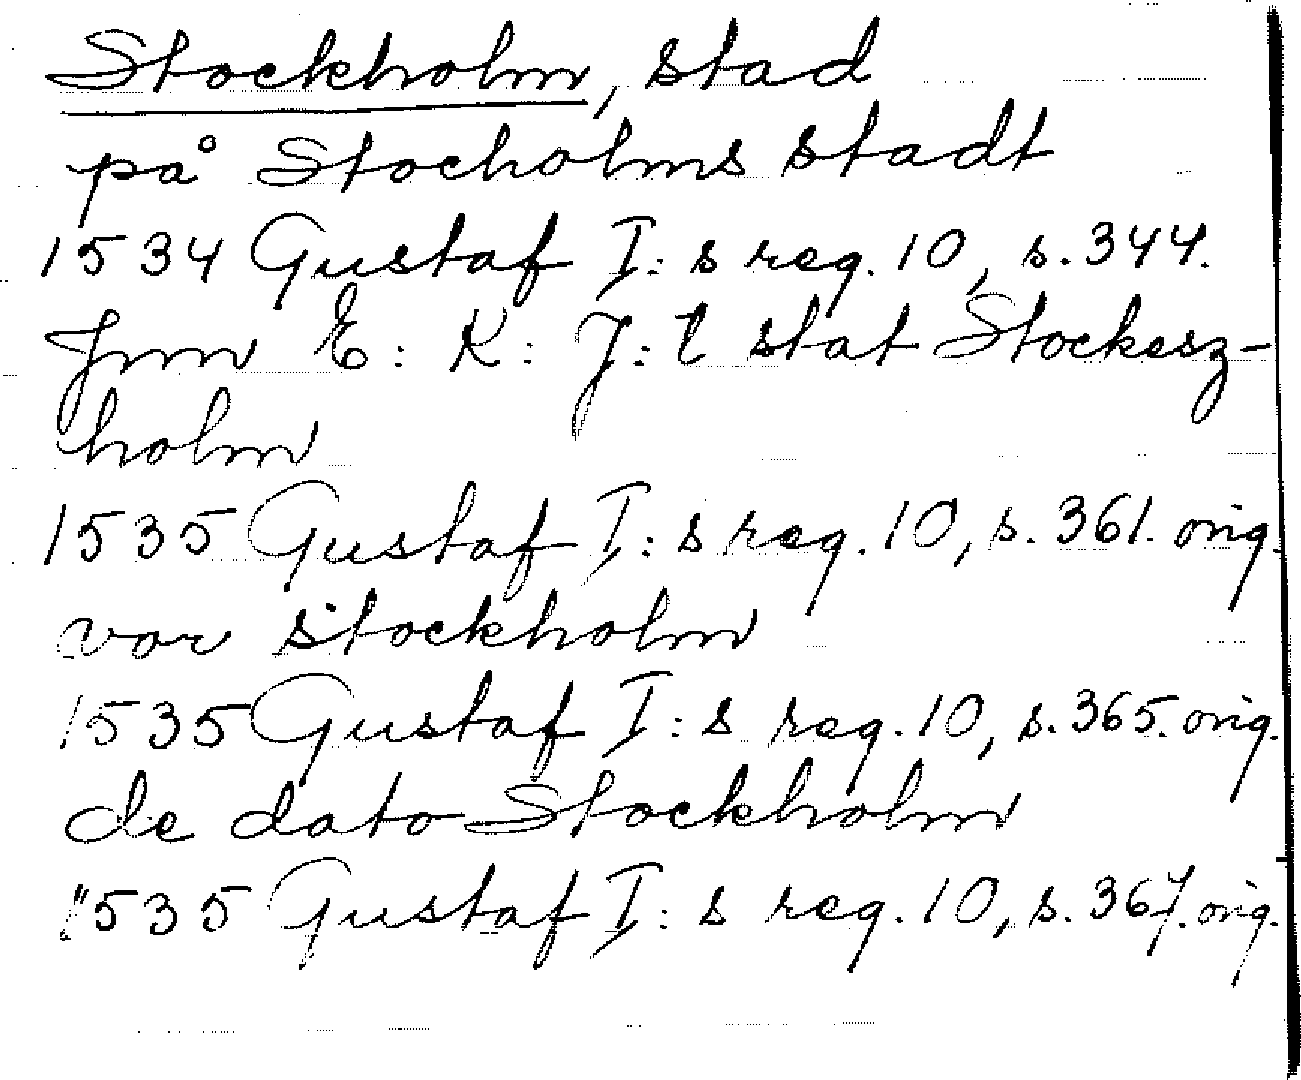 Stockholm, stad
på Stocholms stadt
1534 Gustaf I:s reg. 10, s. 344.
Jnn E: K: J: t stat Stockesz-
holm
1535 Gustaf I:s reg. 10, s. 361. orig.
vor Stockholm
1535 Gustaf I:s reg. 10, s. 365. orig.
de dato Stockholm
1535 Gustaf I:s reg. 10, s. 367. orig.